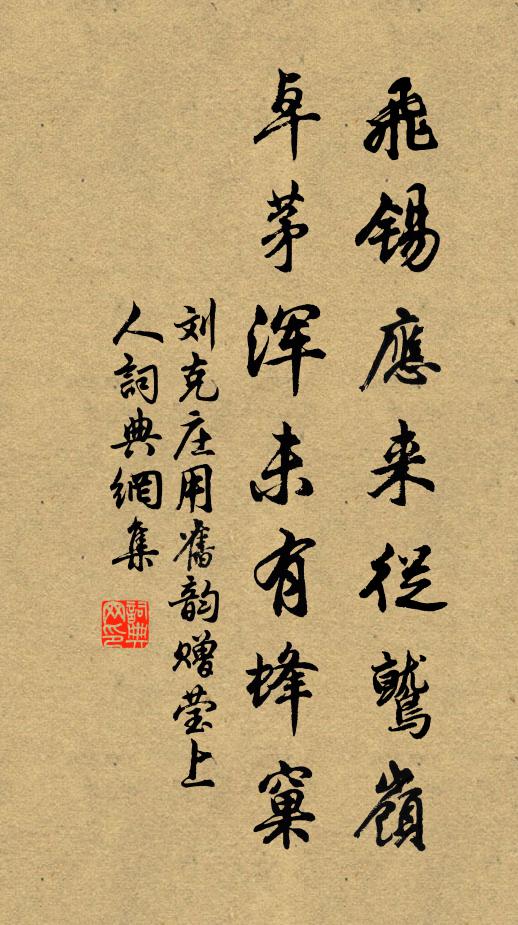 飛錫應来從鷲嶺
卓茅渾未有蜂窠
刘克庄用舊韵赠莹上
人詞典網集
詞典
网印